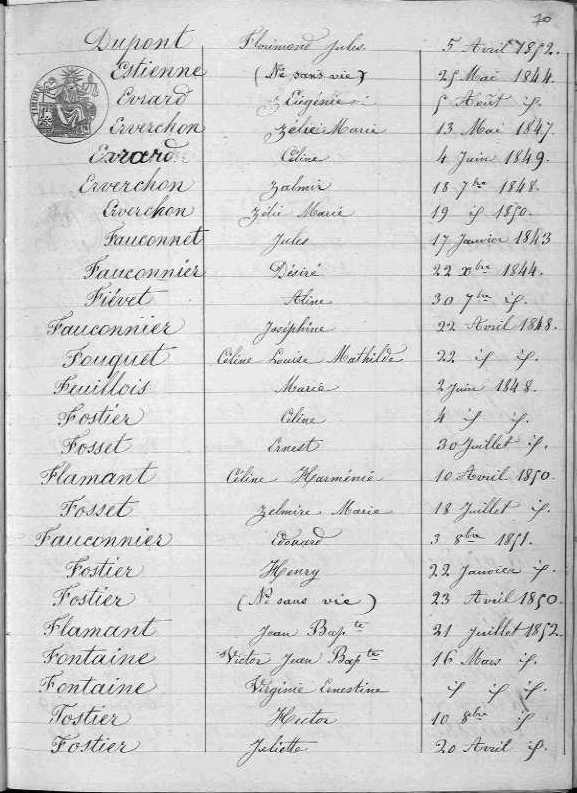 70
Dupont Florimond Jules 5 Avril 1852.
Estienne (Né sans vie) 25 Mai 1844.
TIMBRE
Evrard Eugénie 5 Août if.
Erverchon Zélie Marie 13 Mai 1847.
Evrard Céline 4 Juin 1849.
Erverchon Zalmir 18 7bre 1848.
Erverchon Zélie Marie 19 if 1850.
Fauconnet Jules 17 Janvier 1843
Fauconnier Désiré 22 xbre 1844.
Fiévet Aline 30 7bre if.
Fauconnier Joséphine 22 Avril 1848.
Fouquet Céline Louise Mathilde 22 if if.
Feuillois Marie 2 Juin 1848.
Fostier Céline 4 if if.
Fosset Ernest 30 Juillet if.
Flamant Céline Harménie 10 Avril 1850.
Fosset Zelmire Marie 18 Juillet if.
Fauconnier Edouard 3 8bre 1851.
Fostier Henry 22 Janvier if.
Fostier (Né sans vie) 23 Avril 1850.
Flamant Jean Bapte 21 Juillet 1852.
Fontaine Victor Jean Bapte 16 Mars if.
Fontaine Virginie Ernestine if if if.
Fostier Hector 10 8bre if
Fostier Juliette 20 Avril if.